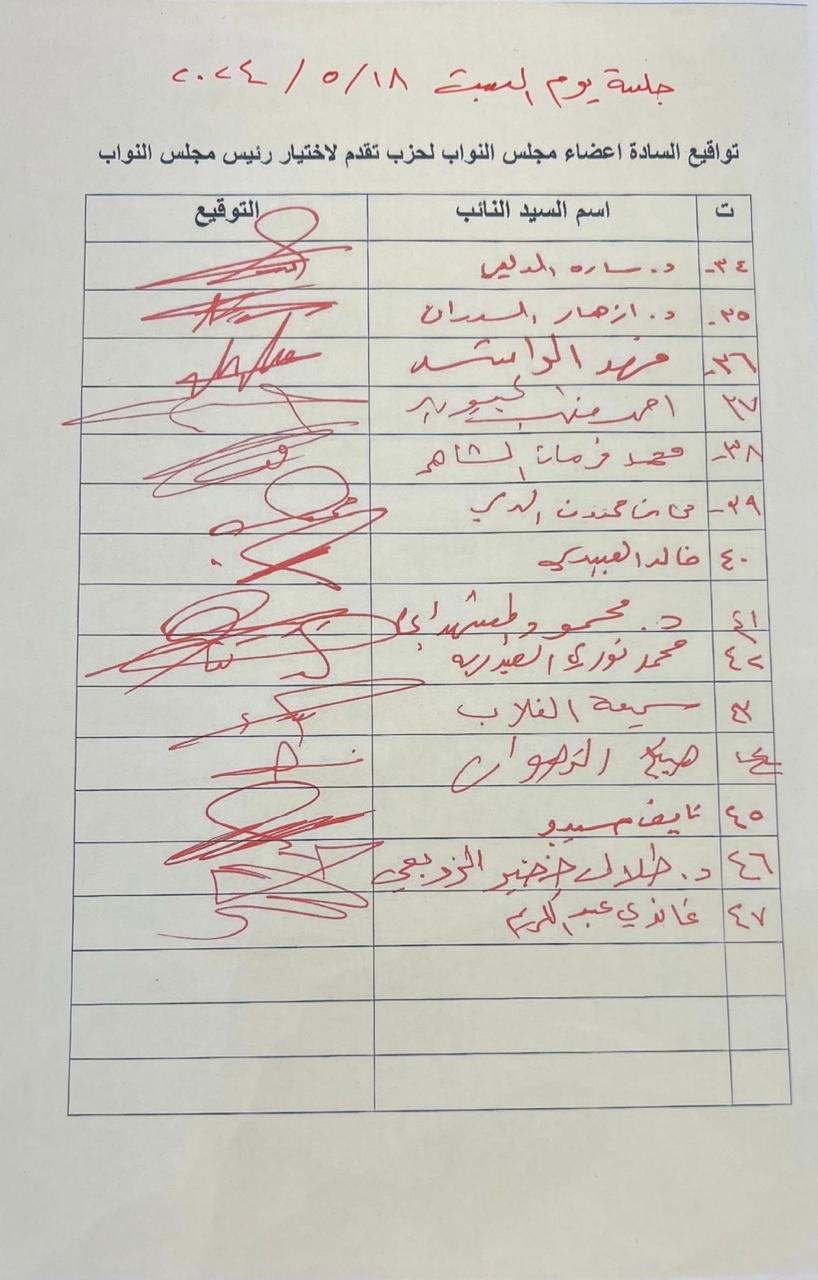 جلسة يوم السبت ٢٠٢٤ / ٥ / ١٨
تواقيع السادة اعضاء مجلس النواب لحزب تقدم لاختيار رئيس مجلس النواب
ت اسم السيد النائب التوقيع
٣٤- د. ساره الدليمي
٣٥- د. ازهار السدران
٣٦- فهد الراشد
٣٧ احمد مظهر الجبوري
٣٨- محمد فرمان الشاهر
٣٩-
٤٠ خالد العبيدي
٤١ د. محمود
٤٢ محمد نوري
٤٣ سميعة الغلاب
٤٤ هيبت
٤٥ نايف سيدو
٤٦ د. طلال خضير الزوبعي
٤٧ غازي عبد الكريم